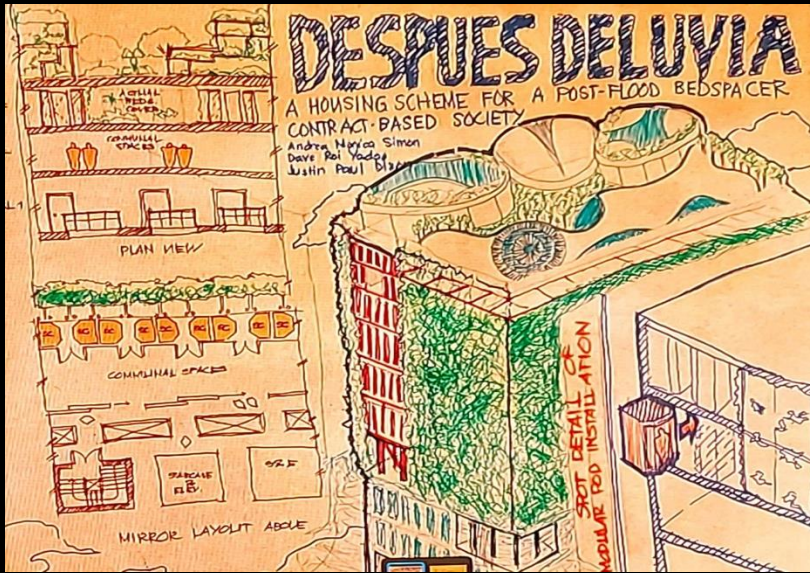 DESPUES DELUVIA
A HOUSING SCHEME FOR A POST-FLOOD BEDSPACER
CONTRACT-BASED SOCIETY
Andrea Monica Simon
Dave Roi
Justin Paul
COMMUNAL
SPACES
PLAN VIEW
COMMUNAL SPACES
STAIRCASE
&
ELEV.
MIRROR LAYOUT ABOVE
SPOT DETAIL OF
MODULAR POD INSTALLATION